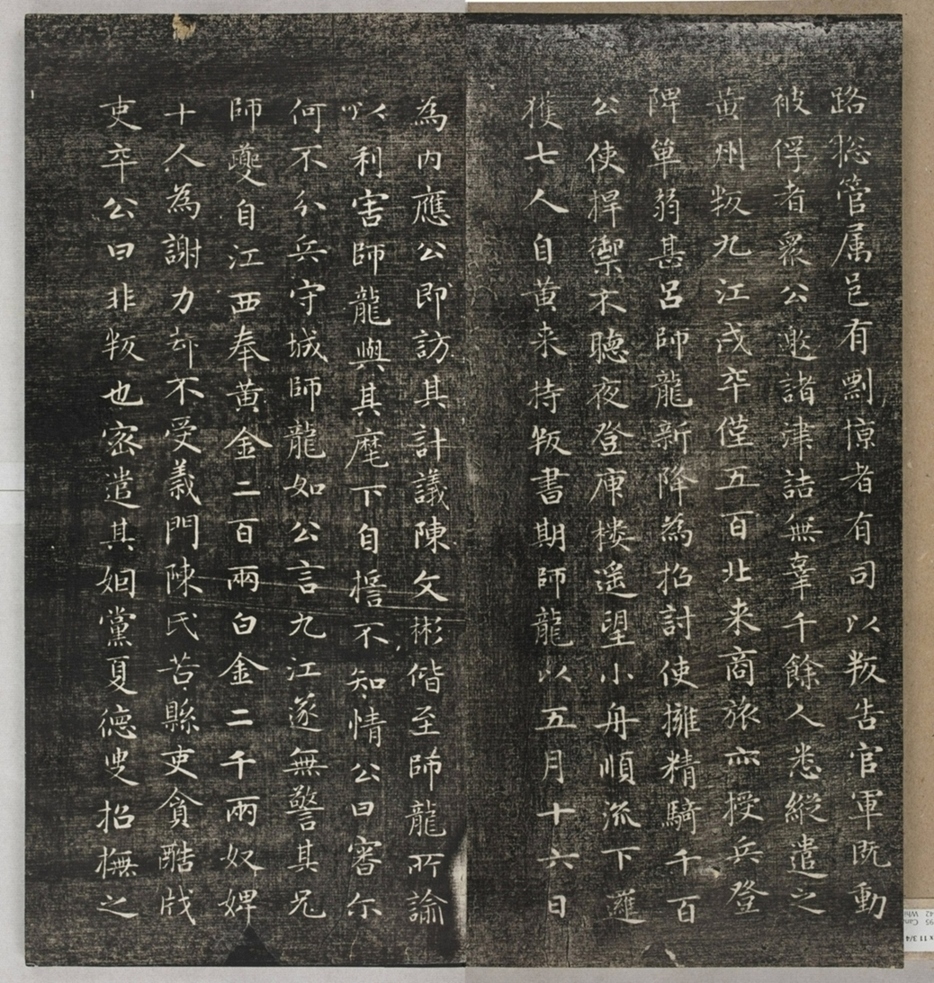 路総管属邑有剽掠者有司以叛告官軍既動
被俘者衆公邀諸津詰無辜千餘人悉縱遣之
黄州叛九江戍卒僅五百北来商旅亦授兵登
陴单弱甚吕師龍新降為招討使擁精騎千百
公使捍禦不聽夜登庾楼遥望小舟順流下邏
獲七人自黄来持叛書期師龍以五月十六日
為内應公即訪其計議陳文彬偕至師龍所諭
以利害師龍與其麾下自擔不知情公曰審尒
何不分兵守城師龍如公言九江遂無警其兄
師夔自江西奉黄金二百兩白金二千兩奴婢
十人為謝力却不受義門陳氏苦縣吏貪酷戕
吏卒公曰非叛也密遣其姻黨夏德叟招撫之